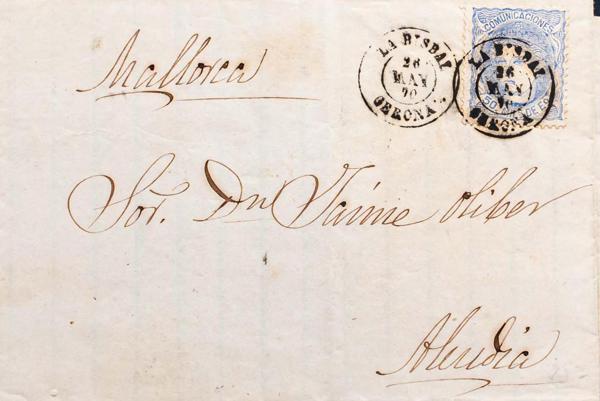 Mallorca
LA BISBAL
26
MAY
70
GERONA
COMUNICACIONES
LA BISBAL
26
MAY
70
GERONA
50
Sor. Dn Jaime oliber
Alcudia